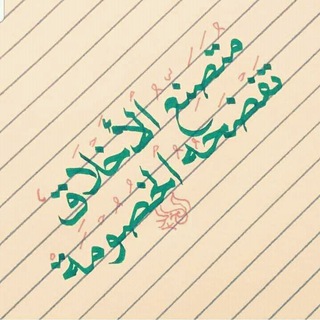 متصنع الأخلاق
تفضحه الخصومة